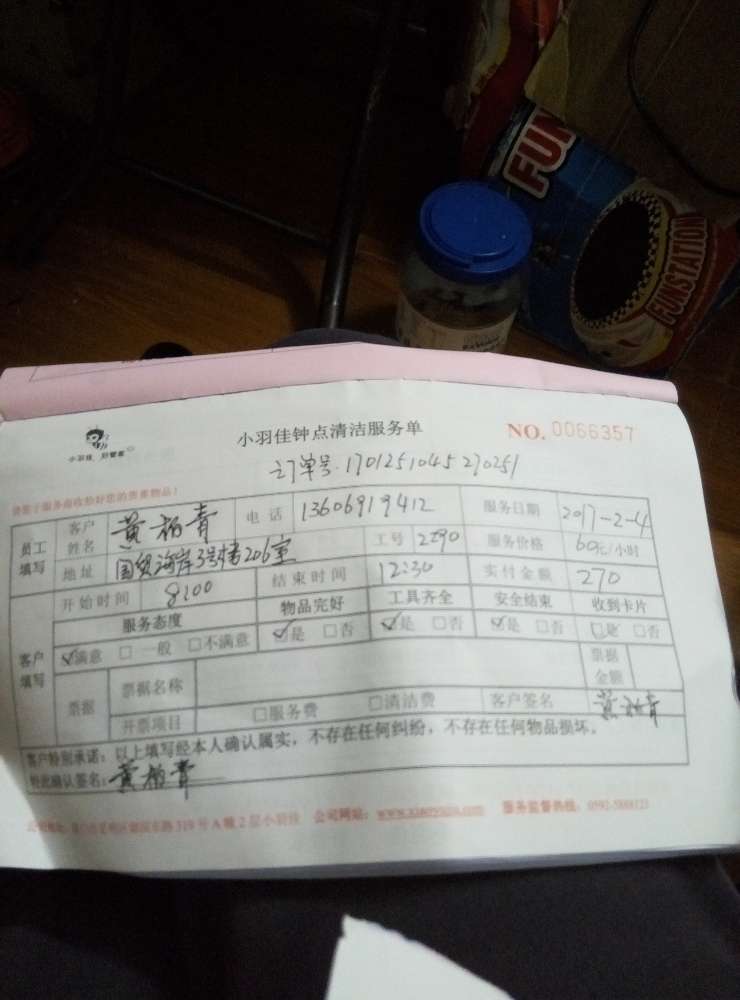 FUN
FUNSTATION
小羽佳 好管家
小羽佳钟点清洁服务单 NO. 0066357
订单号:1701251045270251
员工填写 客户姓名 黄柏青 电话 13606919412 服务日期 2017-2-4
地址 国贸海岸3号楼206室 工号 2290 服务价格 60元/小时
开始时间 8:00 结束时间 12:30 实付金额 270
客户填写 服务态度 物品完好 工具齐全 安全结束 收到卡片
☑满意 □一般 □不满意 ☑是 □否 ☑是 □否 ☑是 □否 ☑是 □否
票据 票据名称 票据金额
开票项目 □服务费 □清洁费 客户签名 黄柏青
客户特别承诺:以上填写经本人确认属实,不存在任何纠纷,不存在任何物品损坏。
特此确认签名:黄柏青
319号A幢2层小羽佳 公司网站: 服务监督热线: